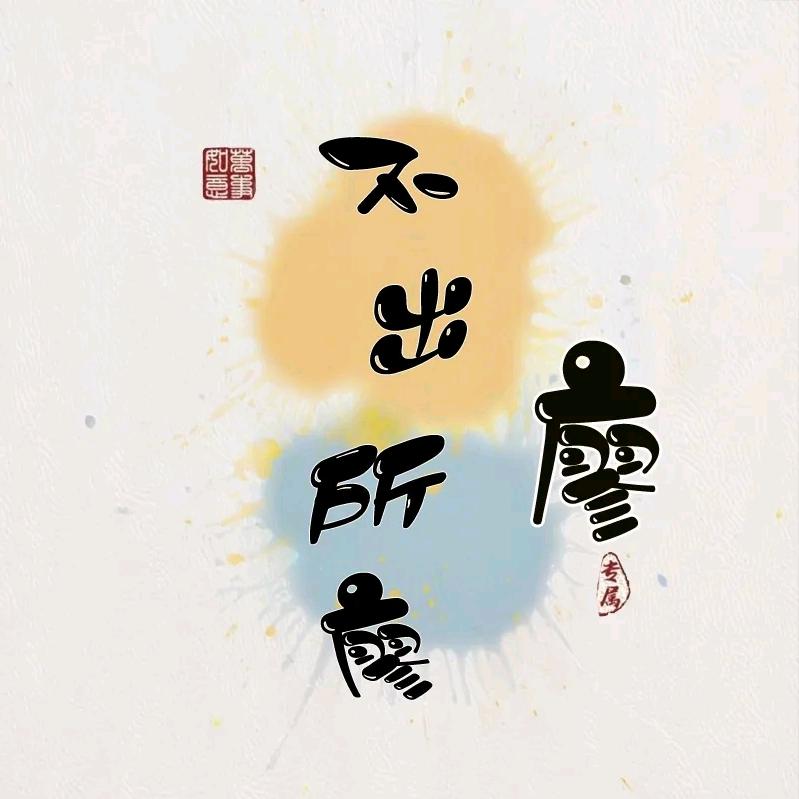 萬事如意
不出所廖
廖
专属